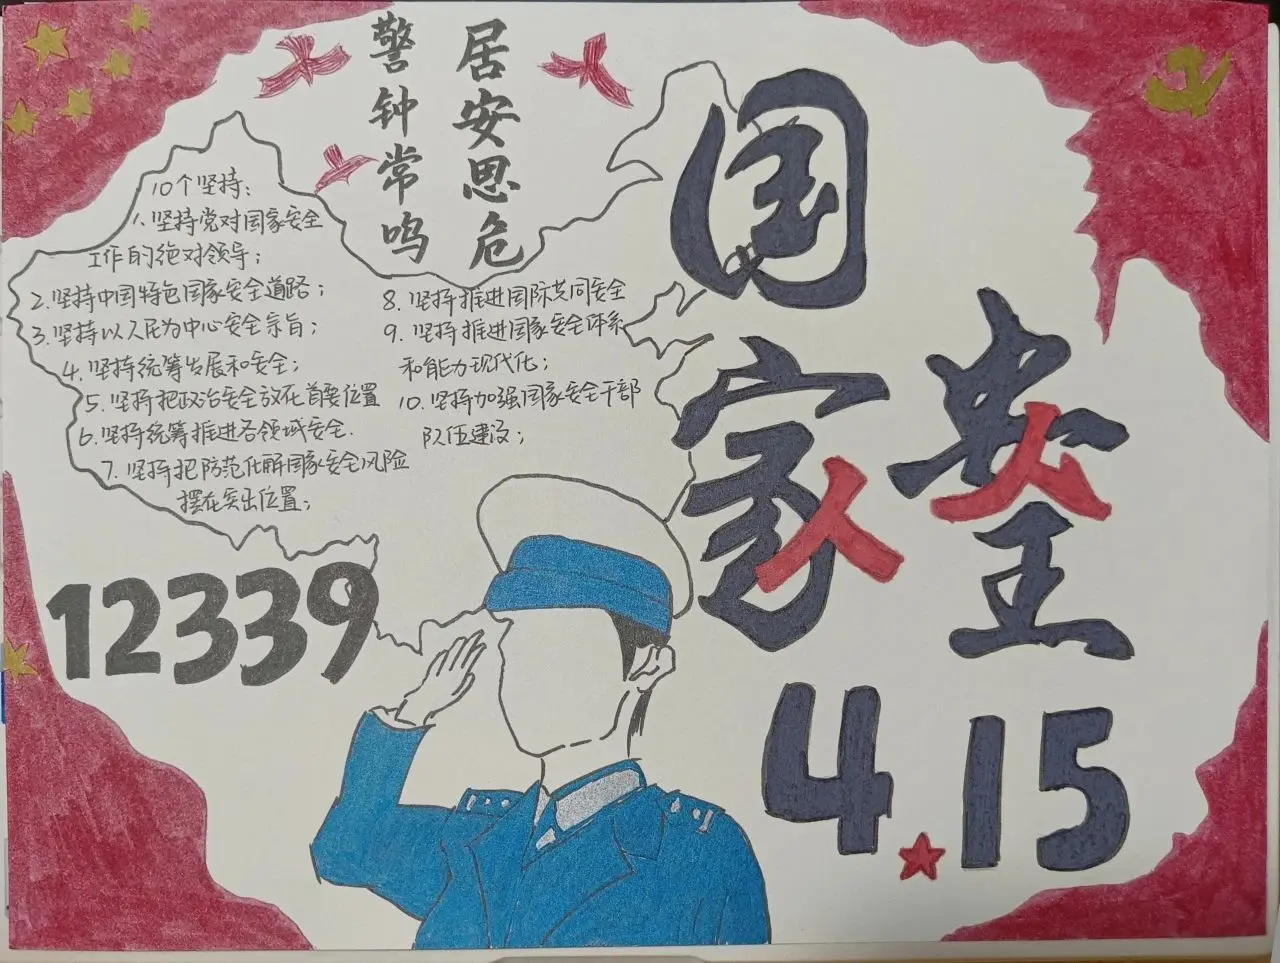 居安思危
警钟常鸣
国家安全
4.15
10个坚持:
1、坚持党对国家安全
工作的绝对领导;
2.坚持中国特色国家安全道路;
3.坚持以人民为中心安全宗旨;
4.坚持统筹发展和安全;
5.坚持把政治安全放在首要位置
6.坚持统筹推进各领域安全.
7.坚持把防范化解国家安全风险
摆在突出位置;
8.坚持推进国际共同安全
9.坚持推进国家安全体系
和能力现代化;
10.坚持加强国家安全干部
队伍建设;
12339